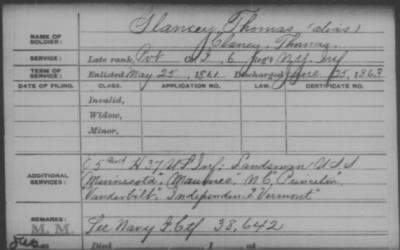 Glancey, Thomas (alias)
NAME OF SOLDIER: Clancy, Thomas
SERVICE: Late rank, Pvt Co. I, 6 Inf
TERM OF SERVICE: Enlisted May 25, 1861 Discharged June 25, 1863
DATE OF FILING. CLASS. APPLICATION NO. LAW. CERTIFICATE NO.
Invalid,
Widow,
Minor,
H 37 U.S. Inf; Landsman U.S.S.
ADDITIONAL SERVICES: "Minnesota", "Maumee", "N.C., Princeton"
"Vanderbilt", Independence & Vermont"
REMARKS: See Navy I. Ctf 38,642
M. M.
Died